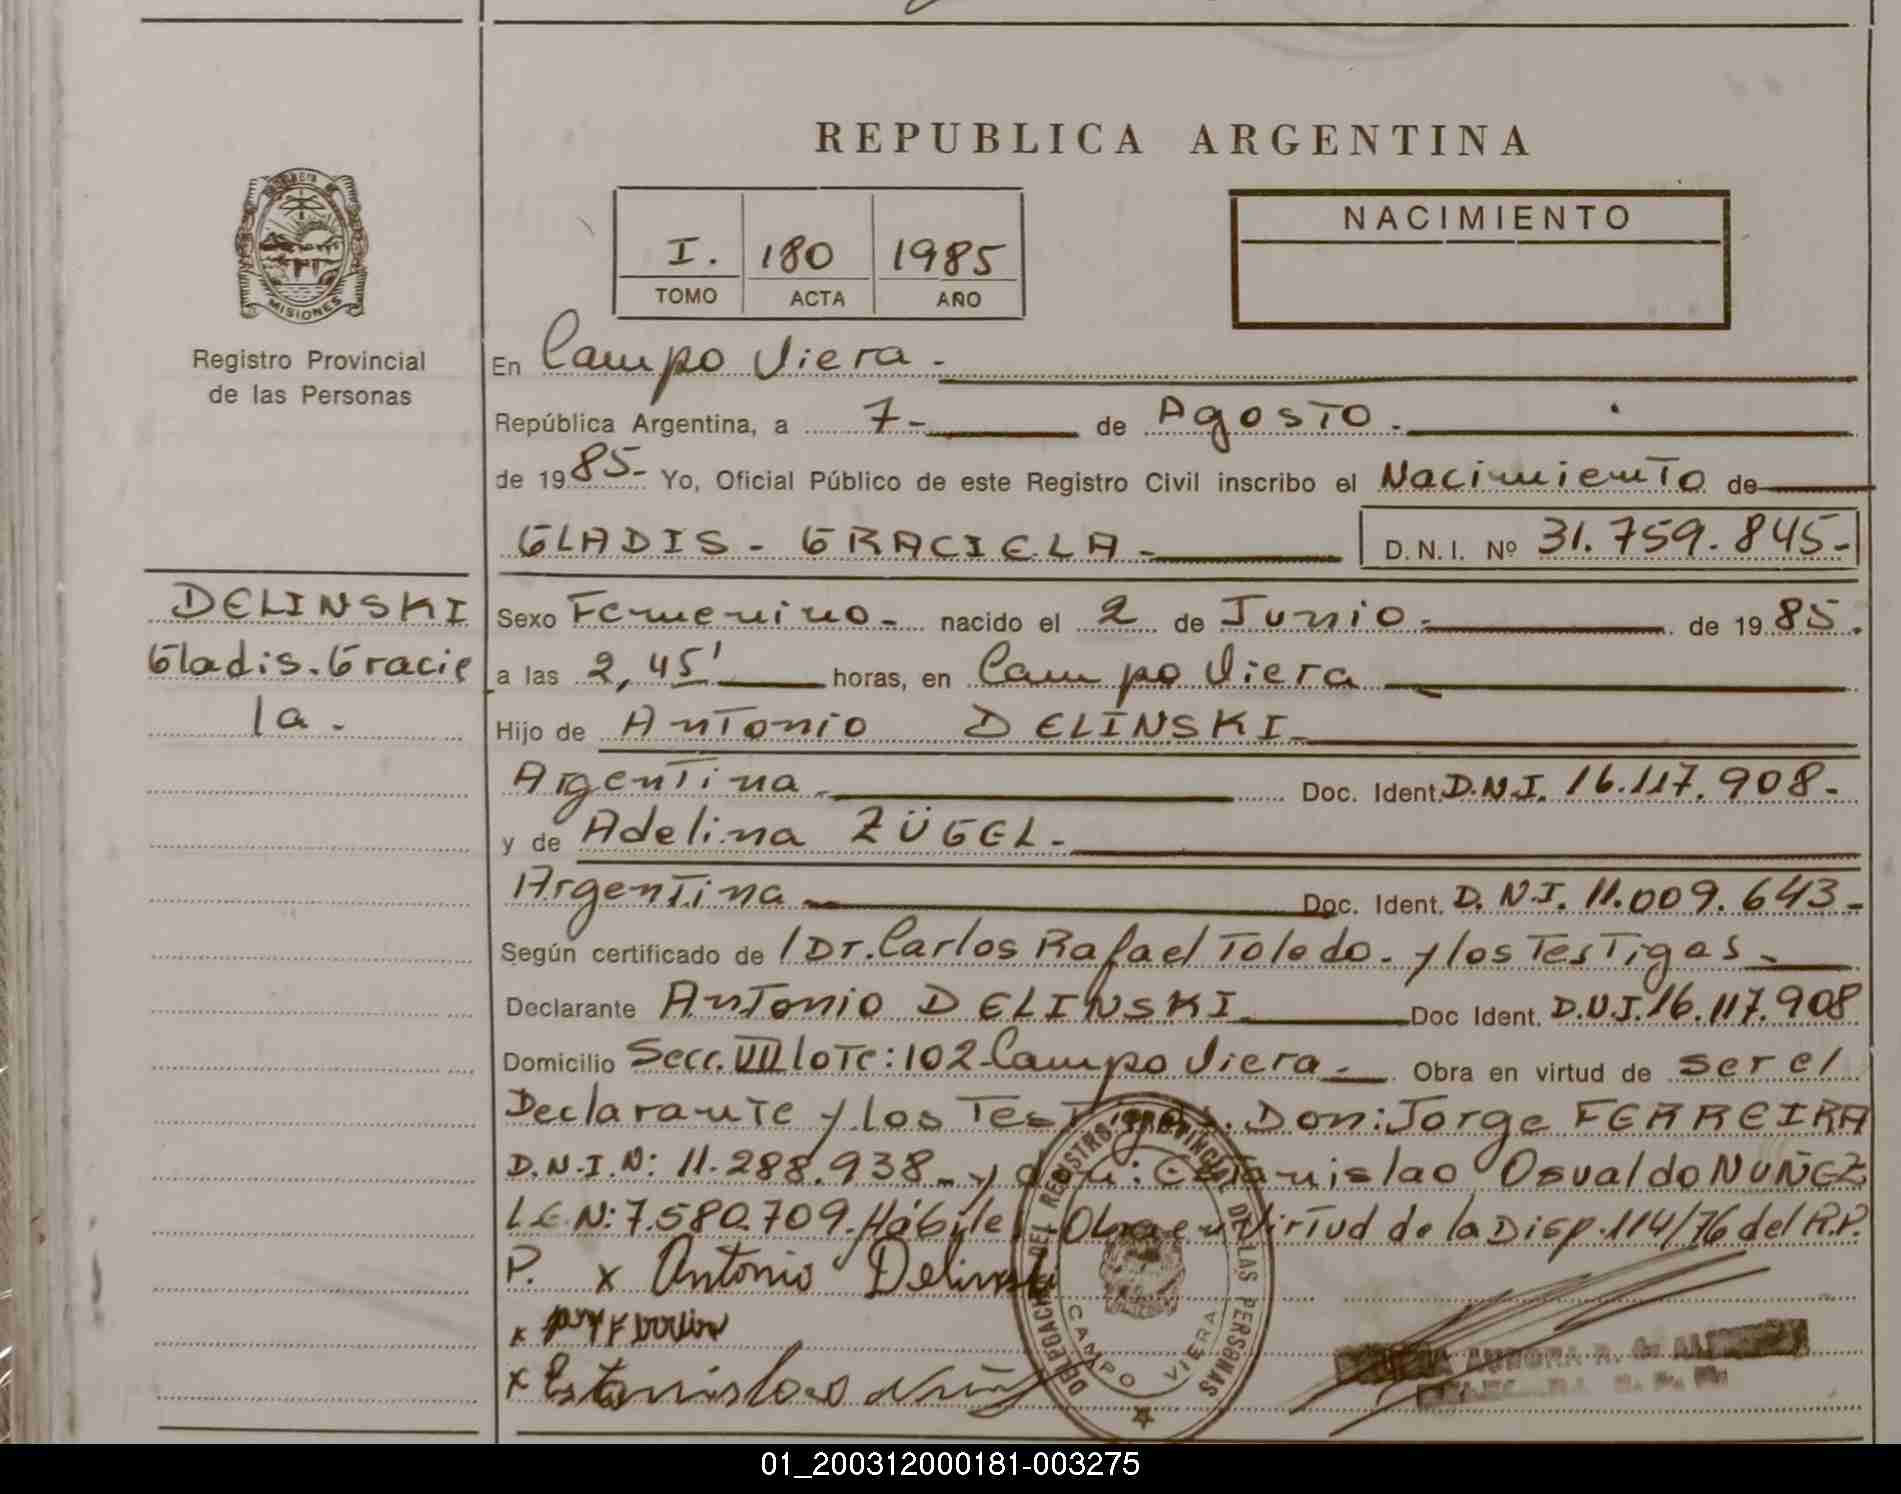 REPUBLICA ARGENTINA
I. 180 1985
TOMO ACTA AÑO
NACIMIENTO
MISIONES
Registro Provincial
de las Personas
En Campo Viera.-
República Argentina, a 7- de Agosto.
de 1985- Yo, Oficial Público de este Registro Civil inscribo el Nacimiento de
GLADIS - GRACIELA - D.N.I. Nº 31.759.845-
DELINSKI
Gladis. Gracie
la.
Sexo Femenino- nacido el 2 de Junio- de 1985.
a las 2,45' horas, en Campo Viera
Hijo de Antonio DELINSKI-
Argentina- Doc. Ident. D.N.I. 16.117.908-
y de Adelina ZÜGEL-
Argentina Doc. Ident. D.N.I. 11.009.643-
Según certificado de / Dr. Carlos Rafael Toledo. y los Testigos-
Declarante Antonio DELINSKI Doc Ident. D.N.I. 16.117.908
Domicilio Secc. VIII lote: 102 Campo Viera- Obra en virtud de ser el
Declarante y los Testigos. Don: Jorge FERREIRA
D.N.I.N: 11.288.938- y don: Estanislao Osvaldo NUÑEZ
L.E.N: 7.580.709. Hábiles. Obra en virtud de la Disp. 114/76 del R.P.
P. x Antonio Delinski
x
x Estanislao Nuñez
DEL REGISTRO PROVINCIAL DE LAS PERSONAS
CAMPO VIERA
01_200312000181-003275